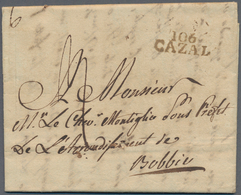 106
CAZAL
A Monsieur
Mr. Le Chevr. Montiglio Sous Prefet
De L'Arrondissement de
Bobbio